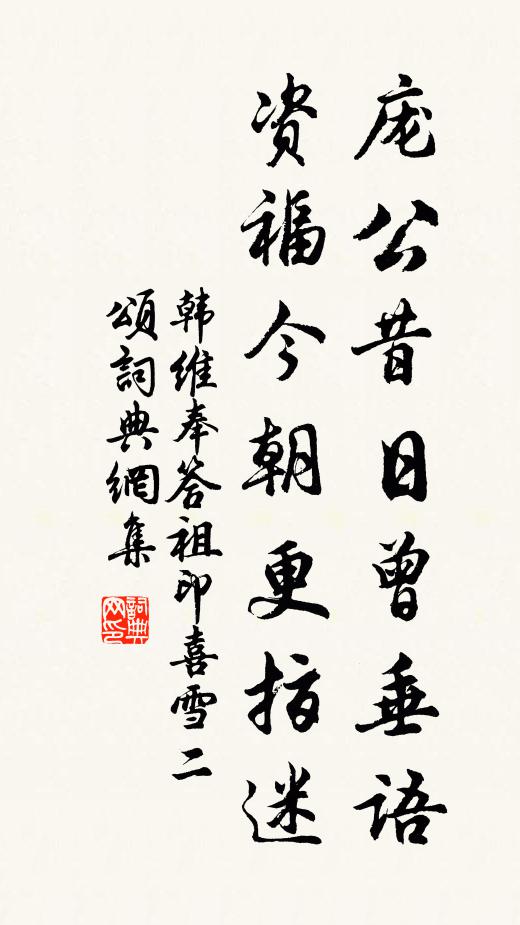 庞公昔日曾垂语
资福今朝更指迷
韩维奉答祖印喜雪二
頌詞典網集
詞典
网印